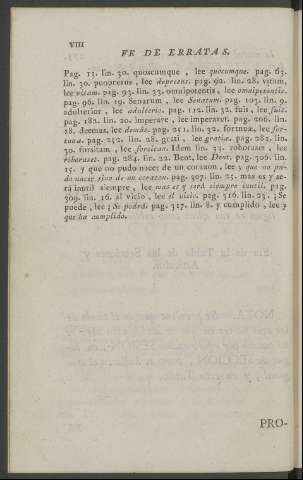 VIII
FE DE ERRATAS.
Pag. 13. lin. 30. quoscumque, lee quocumque. pag. 65.
lin. 30. ponoreros, lee deprecans. pag. 92. lin. 28. vitam,
lee vitam. pag. 93. lin. 33. omnipotentis, lee omnipotentis.
pag. 96. lin. 19. Senarum, lee Senatum. pag. 103. lin. 9.
adulterior, lee adulterio. pag. 112. lin. 32. fuis, lee suis.
pag. 182. lin. 20. imperare, lee imperaret. pag. 206. lin.
28. decenus, lee demás. pag. 251. lin. 32. fortnuæ, lee for-
tunæ. pag. 252. lin. 28. gratii, lee gratiæ. pag. 282. lin.
30. forsitam, lee forsitan. Idem lin. 33. roboraset, lee
roboraset. pag. 284. lin. 22. Bent, lee Deut. pag. 306. lin.
15. y que no pudo nacer de un corazon, lee y que no pu-
do nacer sino de un corazon. pag. 307. lin. 25. mas es y se-
rá inutil siempre, lee mas es y será siempre inutil. pag.
309. lin. 16. al vicio, lee el vicio. pag. 316. lin. 23. ¿Se
puede, lee ¿Se podrá? pag. 317. lin. 8. y cumplido, lee y
que ha cumplido.
PRO-